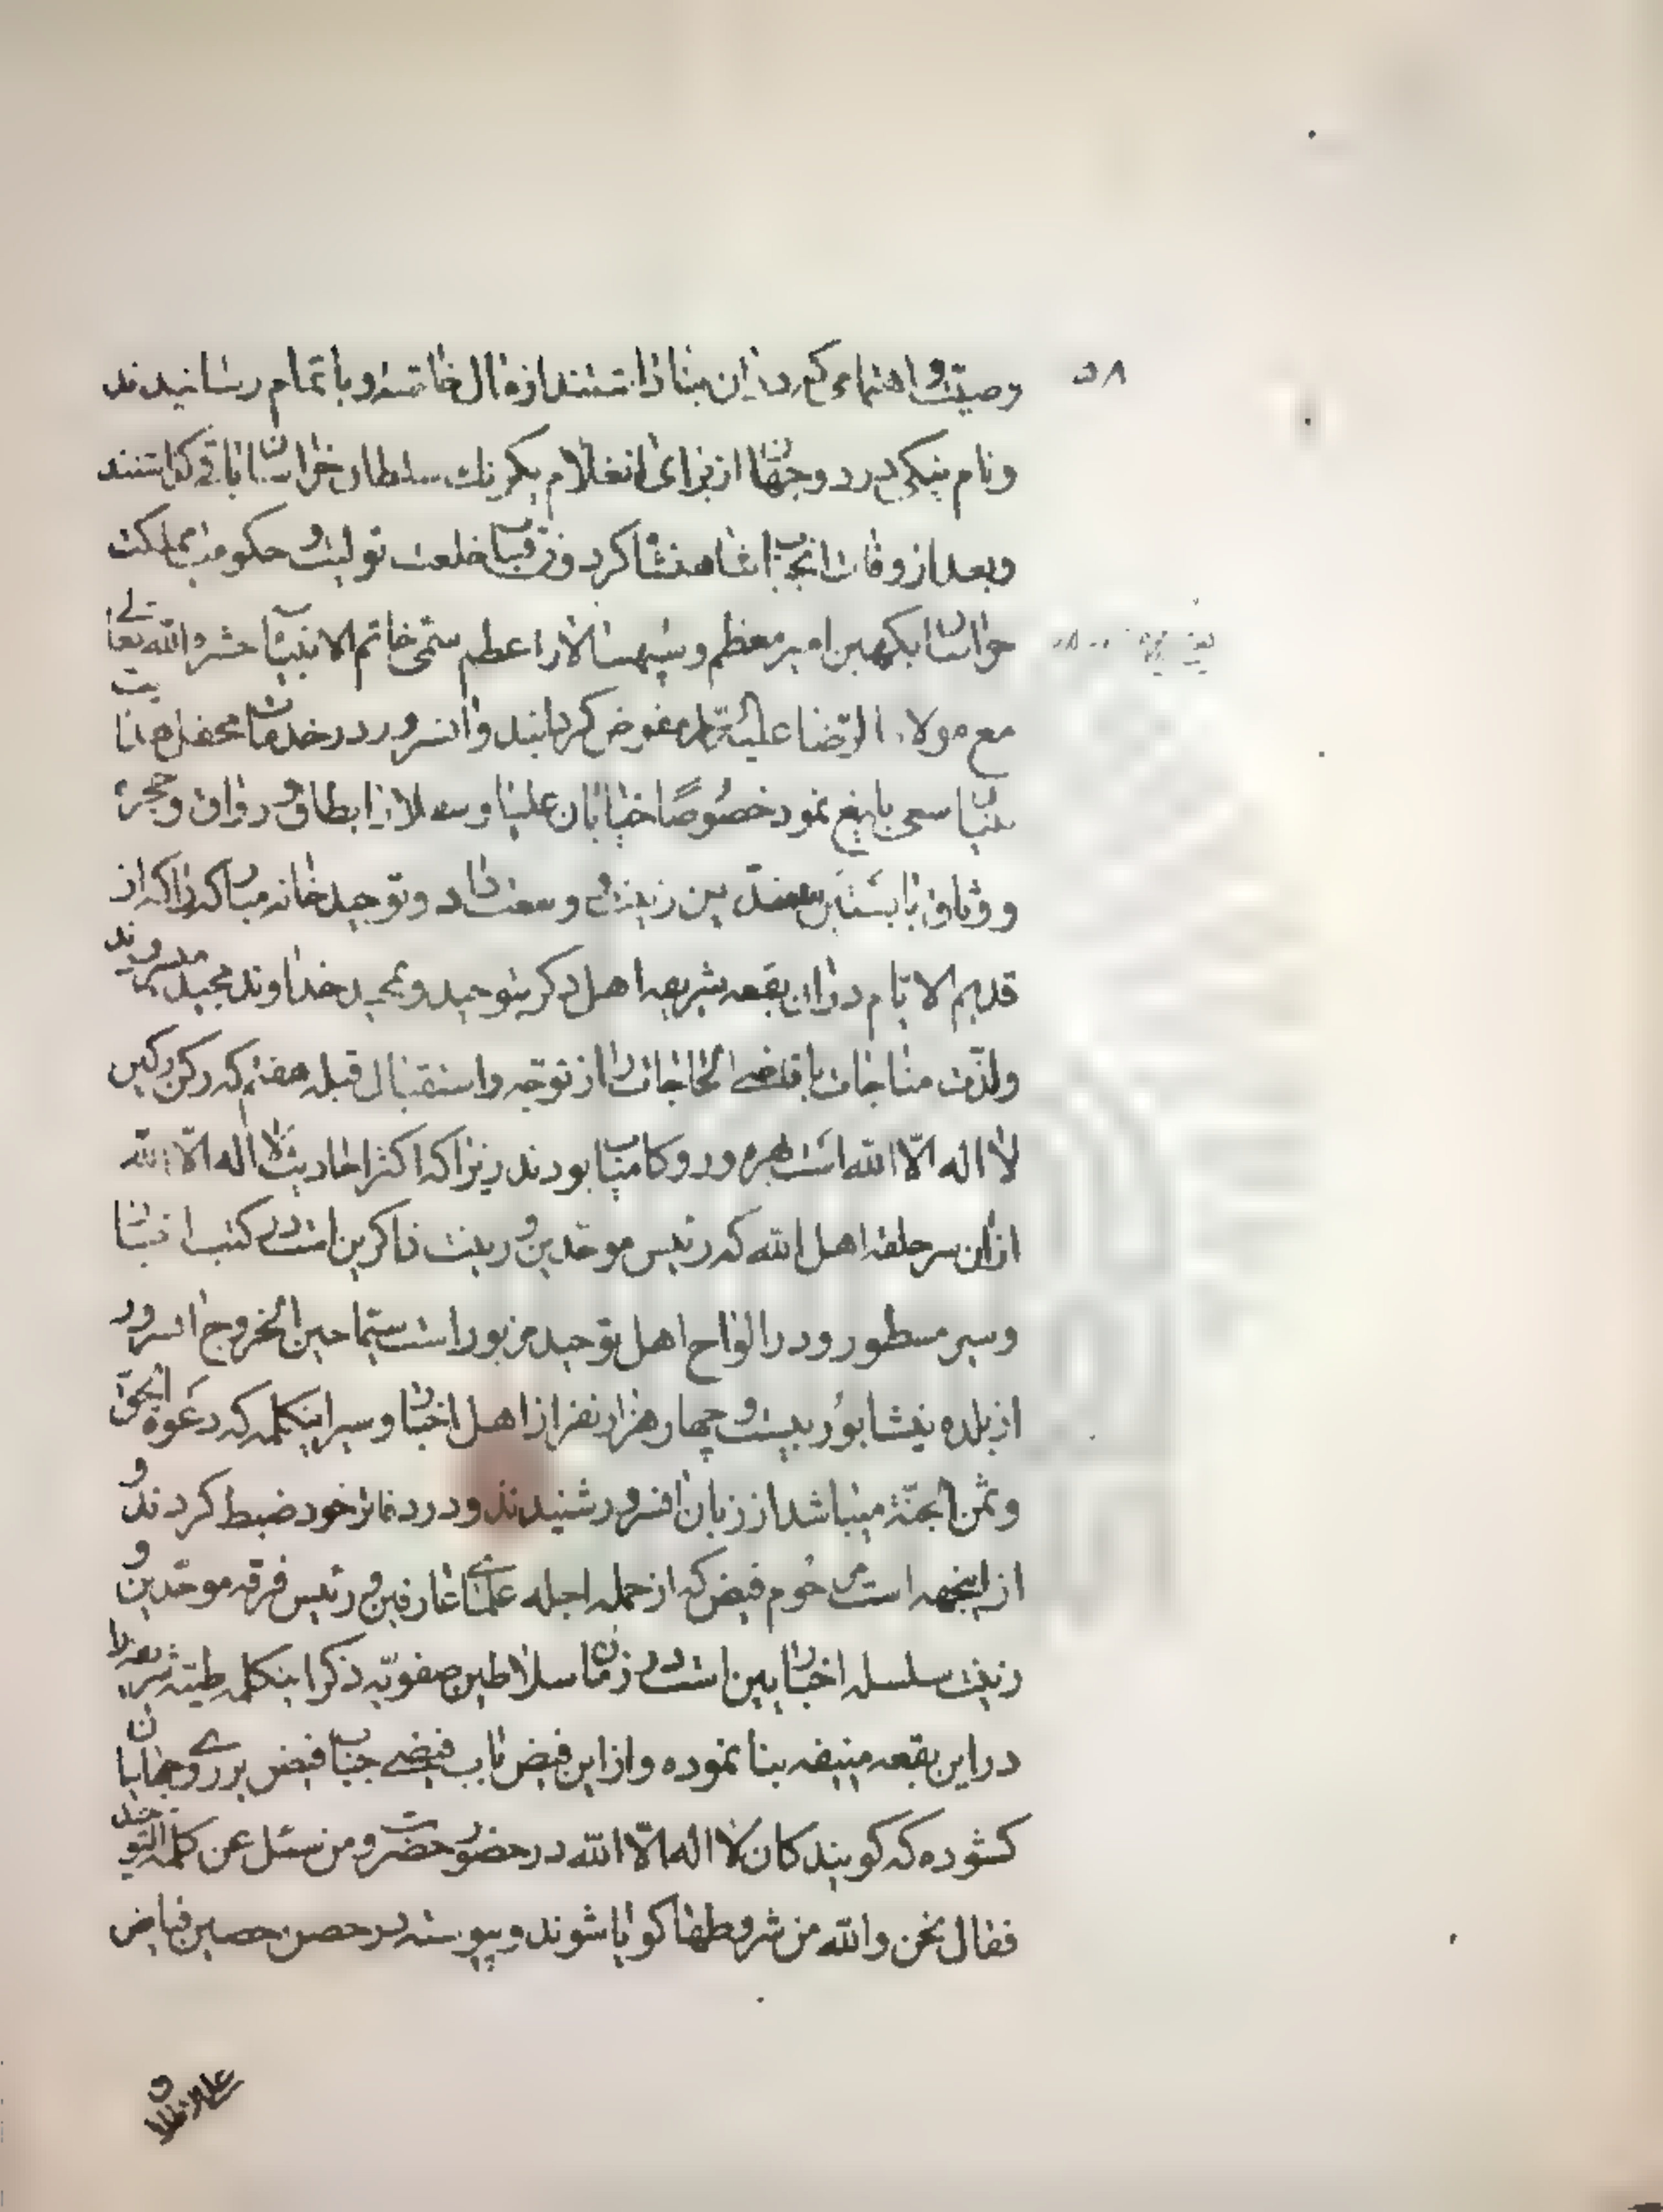 ۵۸
وصیت و اهتمامی که در ان بنا داشتند از مال خاصه و باتمام رسانیدند
ونام نیکی در دو جهان از برای انغلام یکرنك سلطان خراسان باقی کذاشتند
وبعد از وفات انجناب شاهنشاه کردون قباب خلعت تولیت و حکومت مملکت
خراسان بکهین امیر معظم وسپهسالار اعظم سمی خاتم الانبیا حشره الله تعالی
مع مولاه الرضا علیه مفوض کردانید وانسرور در خدمات محفل جنا
سعی بلیغ نمود خصوصا خیابان علیا و سفلا را بطاق و رواق و حجره
ووثاق زینت و وسعت داد و توحید خانه مبارکه را که از
قدیم الایام در ان بقعه شریفه اهل ذکر بتوحید و تمجید خداوند مجید میسرودند
ولذت مناجات با قاضی الحاجات را از توجه و استقبال قبله هفتم که رکن رکین
لا اله الا الله است بهره ور و کامیاب بودند زیرا که اکثر احادیث لا اله الا الله
از ان سر حلقه اهل الله که رئیس موحدین و زینت ذاکرین است در کتب اخبار
وسیر مسطور و در الواح اهل توحید مزبور است سیما حین الخروج انسرور
از بلده نیشابور بیست و چهار هزار نفر از اهل اخبار و سیر اینکلمه که دعوة الحق
وثمن الجنة میباشد از زبان انسرور شنیدند و در دفاتر خود ضبط کردند و
از اینجهه است مرحوم فیض که از جمله اجله علمای عارفین و رئیس فرقه موحدین و
زینت سلسله اخباریین است در زمان سلاطین صفویه ذکر اینکلمه طیبه شریفه را
در این بقعه منیفه بنا نموده و از این فیض باب فیضی جناب فیض بر روی جهانیان
کشوده که کویندکان لا اله الا الله در حضور حضرت ومن سئل عن کلمة التوحید
فقال نحن والله من شروطها کویا شوند و پیوسته در حصن حصین فیاض